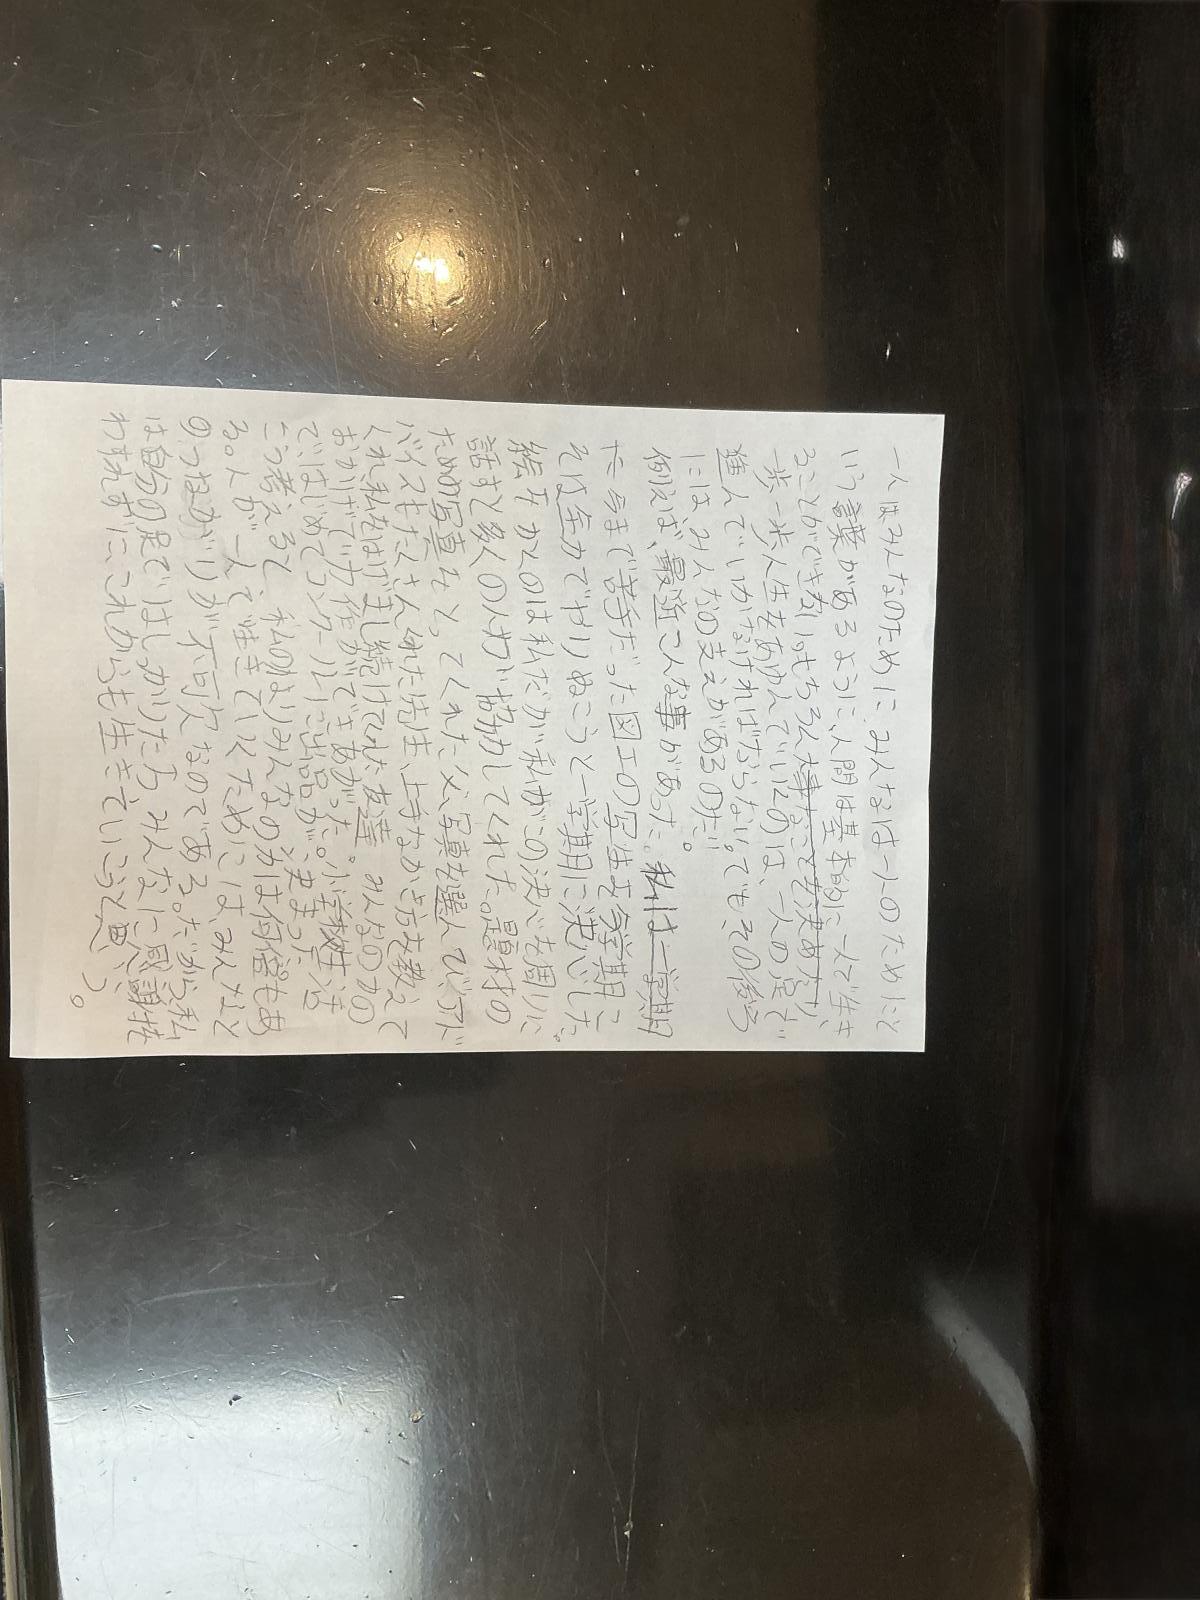 一人はみんなのために みんなは一人のためにと
いう言葉があるように、人間は基本的に一人で生き
ることができない。もちろん大事なことを決めたり、
一歩一歩人生をあゆんでいくのは、一人の足で
進んでいかなければならない。でもその後ろ
には、みんなの支えがあるのだ。
例えば、最近こんな事があった。私は一学期
た 今まで苦手だった図工の写生を今学期こ
そは全力でやりぬこうと一学期に決心した。
絵をかくのは私だが私がこの決心を周りに
話すと多くの人が協力してくれた。題材の
ための写真をとってくれた父、写真を選んで、アド
バイスもたくさんくれた先生、上手なかき方を教えて
くれ私をはげまし続けてくれた友達。みんなの力の
おかげで力作ができあがった。小学校生活
で、はじめてコンクールに出品が決まった。
こう考えると、私の力よりみんなの力は何倍もあ
る。人が一人で生きていくためにはみんなと
のつながりが不可欠なのである。だから私
は自分の足でしっかりたち、みんなに感謝を
わすれずに、これからも生きていこうと思
う。